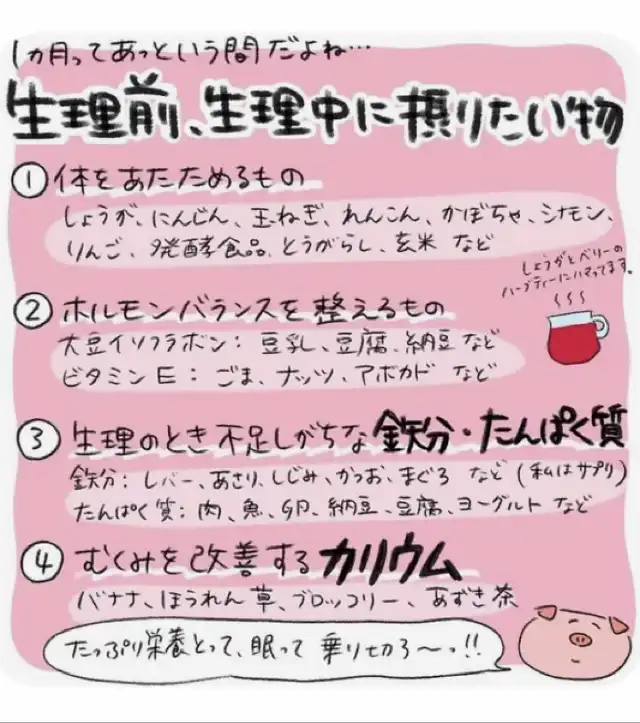 1ヵ月ってあっという間だよね…
生理前、生理中に摂りたい物
① 体をあたためるもの
しょうが、にんじん、玉ねぎ、れんこん、かぼちゃ、シナモン、
りんご、発酵食品、とうがらし、玄米 など
しょうがとベリーの
ハーブティーにハマってます。
② ホルモンバランスを整えるもの
大豆イソフラボン：豆乳、豆腐、納豆 など
ビタミンE：ごま、ナッツ、アボカド など
③ 生理のとき不足しがちな鉄分・たんぱく質
鉄分：レバー、あさり、しじみ、かつお、まぐろ など（私はサプリ）
たんぱく質：肉、魚、卵、納豆、豆腐、ヨーグルト など
④ むくみを改善するカリウム
バナナ、ほうれん草、ブロッコリー、あずき茶
たっぷり栄養とって、眠って 乗り切ろ〜っ!!